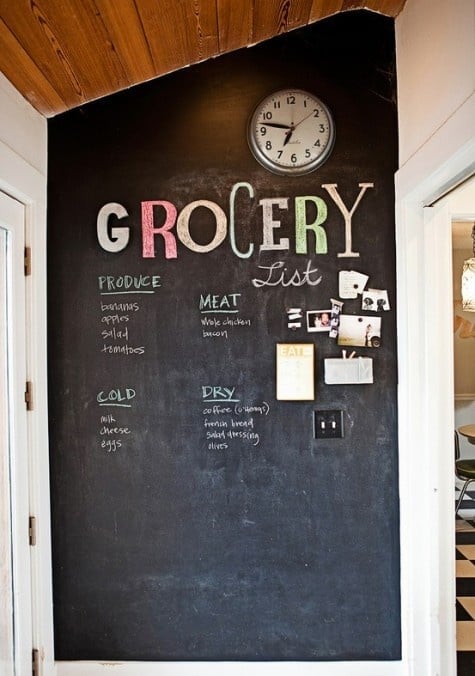 12
1
2
3
4
5
6
7
8
9
10
11
GROCERY
List
PRODUCE
bananas
apples
salad
tomatoes
MEAT
whole chicken
bacon
EAT
COLD
milk
cheese
eggs
DRY
coffee
french bread
salad dressing
olives